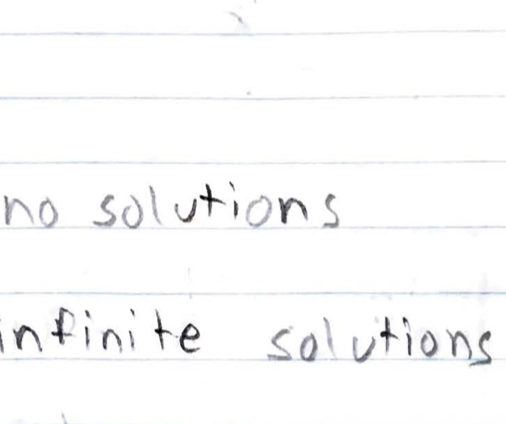 no solutions
infinite solutions